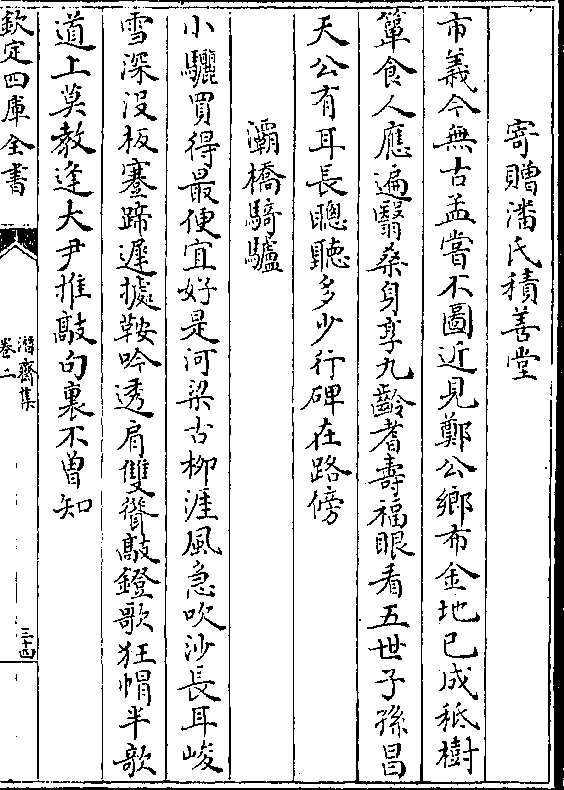 寄贈潘氏積善堂
市義今無古孟嘗不圖近見鄭公鄉布金地已成秪樹
簞食人應遍翳桑身享九齡耆壽福眼看五世子孫昌
天公有耳長聰聽多少行碑在路傍
灞橋騎驢
小驪買得最便宜好是河梁古柳涯風急吹沙長耳峻
雪深没板蹇蹄遲據鞍吟透肩雙聳敲鐙歌狂帽半欹
道上莫教逢大尹推敲句裏不曾知
欽定四庫全書
潛齋集
卷二
三十四